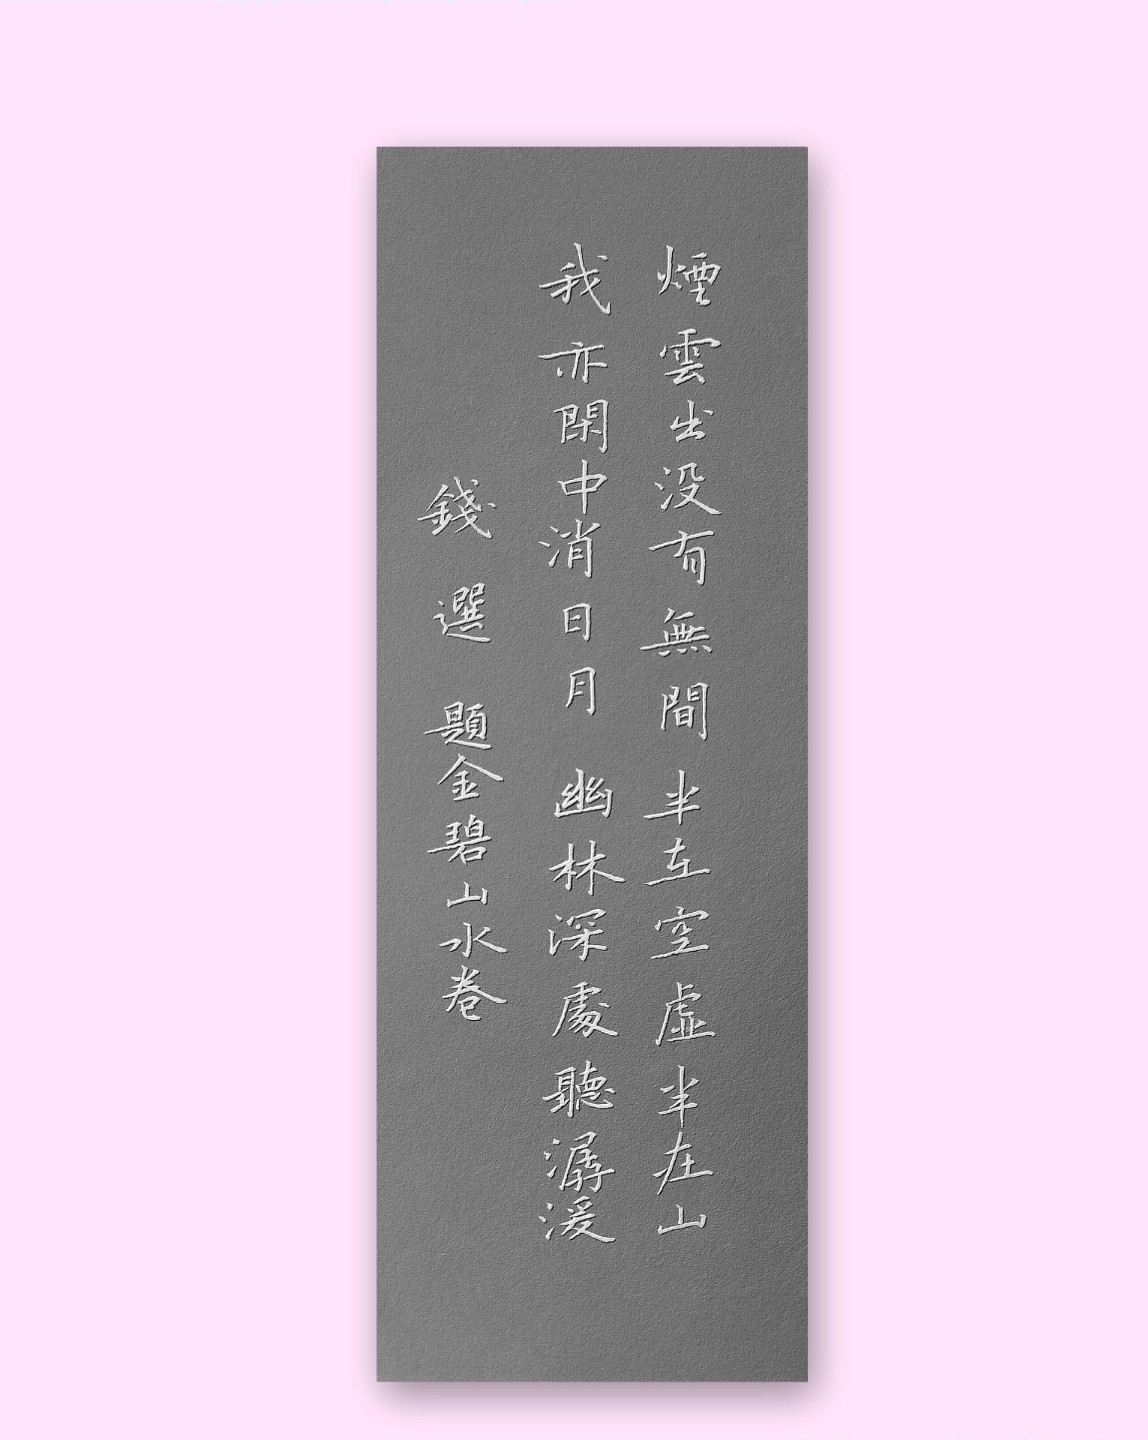 煙雲出没有無間 半在空虛半在山
我亦閑中消日月 幽林深處聽潺湲
錢選 題金碧山水卷